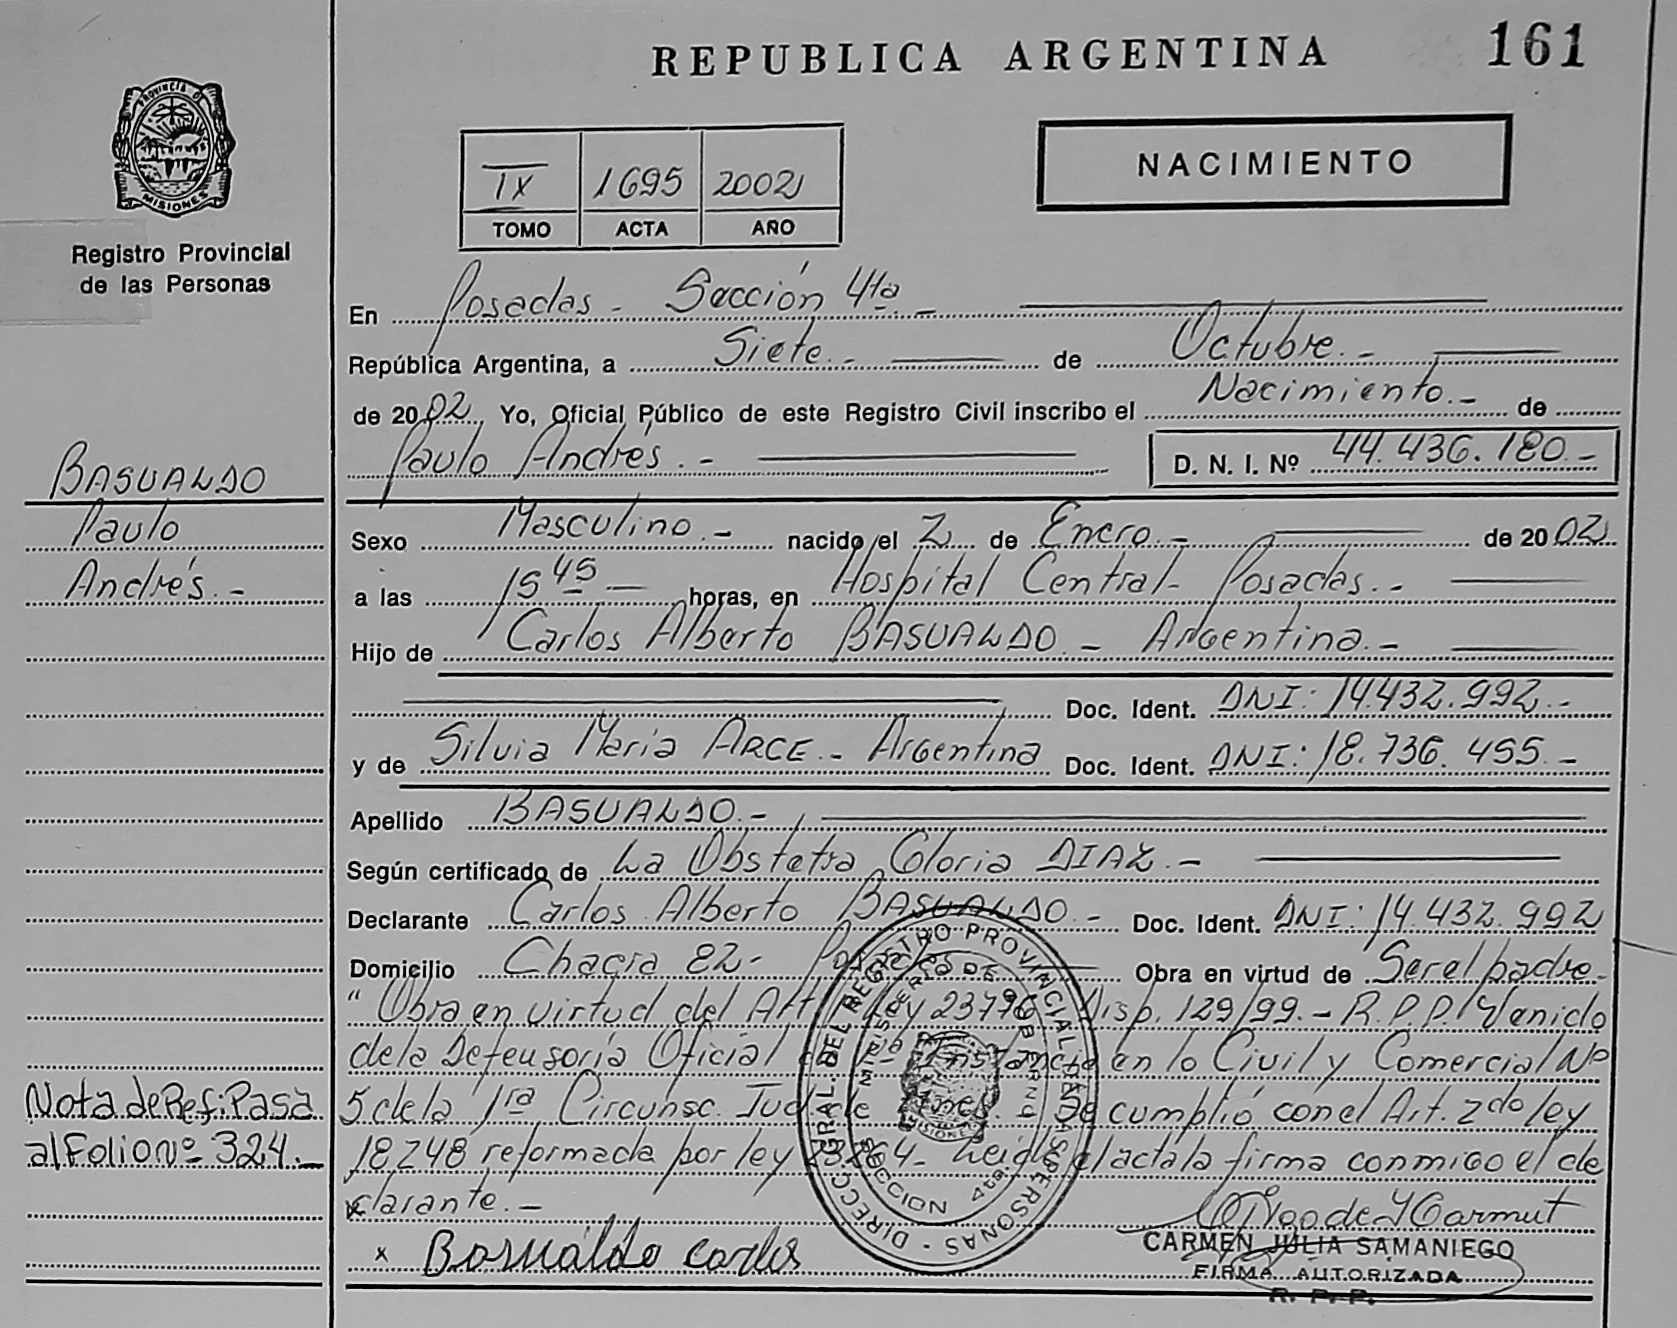 REPUBLICA ARGENTINA 161
PROVINCIA DE
MISIONES
Registro Provincial
de las Personas
IX 1695 2002
TOMO ACTA AÑO
NACIMIENTO
En Posadas - Sección 4ta -
República Argentina, a Siete.- de Octubre.-
de 2002 Yo, Oficial Público de este Registro Civil inscribo el Nacimiento.- de
Paulo Andrés.- D. N. I. Nº 44.436.180.-
BASUALDO
Paulo
Andrés.-
Sexo Masculino.- nacido el 2 de Enero.- de 2002
a las 15 45 - horas, en Hospital Central- Posadas.-
Hijo de Carlos Alberto BASUALDO - Argentina.-
Doc. Ident. DNI: 14.432.992.-
y de Silvia María ARCE.- Argentina Doc. Ident. DNI: 18.736.455.-
Apellido BASUALDO.-
Según certificado de La Obstetra Gloria DIAZ.-
Declarante Carlos Alberto BASUALDO.- Doc. Ident. DNI: 14.432.992
Domicilio Chacra 82- Obra en virtud de Ser el padre-
"Obra en virtud del Art Ley 23776 Disp. 129/99.- R.P.P. Venido
de la Defensoría Oficial Instancia en lo Civil y Comercial Nº
5 de la 1ra Circunsc. Jud. Se cumplió con el Art. 2do ley
18248 reformada por ley Leída el acta la firma conmigo el de
clarante.-
Nota de Ref: Pasa
al Folio Nº 324.-
x Basualdo Carlos
DIRECC. GRAL. DEL REGISTRO PROVINCIAL DE LAS PERSONAS
MINISTERIO DE GOBIERNO
SECCION 4ta
MISIONES
CARMEN JULIA SAMANIEGO
FIRMA AUTORIZADA
R. P. P.